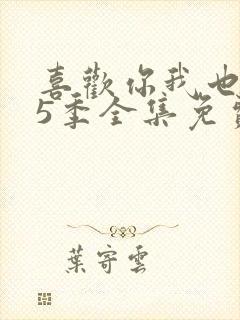 喜歡你我也
5季全集免費
葉寄雲